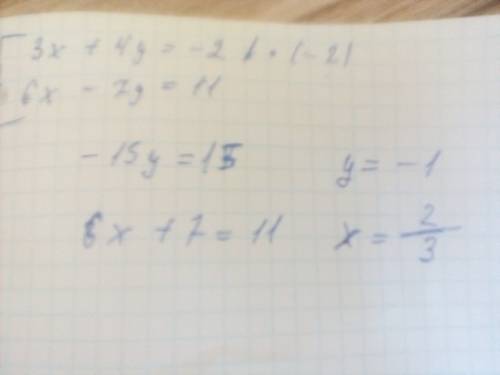 3x + 4y = -2 | · (-2)
6x - 7y = 11
-15y = 15
y = -1
6x + 7 = 11
x = 2/3